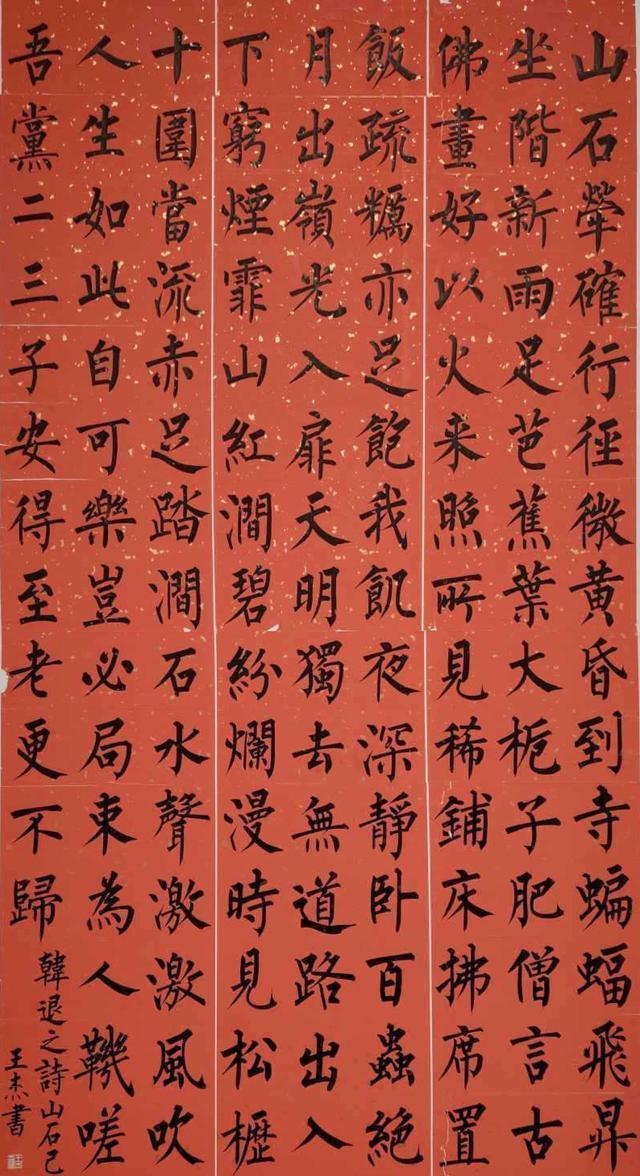 山石犖確行徑微黃昏到寺蝙蝠飛昇
坐階新雨足芭蕉葉大栀子肥僧言古
佛畫好以火来照所見稀鋪床拂席置
飯疏糲亦足飽我飢夜深靜卧百蟲絕
月出嶺光入扉天明獨去無道路出入
下窮煙霏山紅澗碧紛爛漫時見松櫪
十圍當流赤足踏澗石水聲激激風吹
人生如此自可樂豈必局束為人鞿嗟
吾黨二三子安得至老更不歸
韓退之詩山石己
王杰書